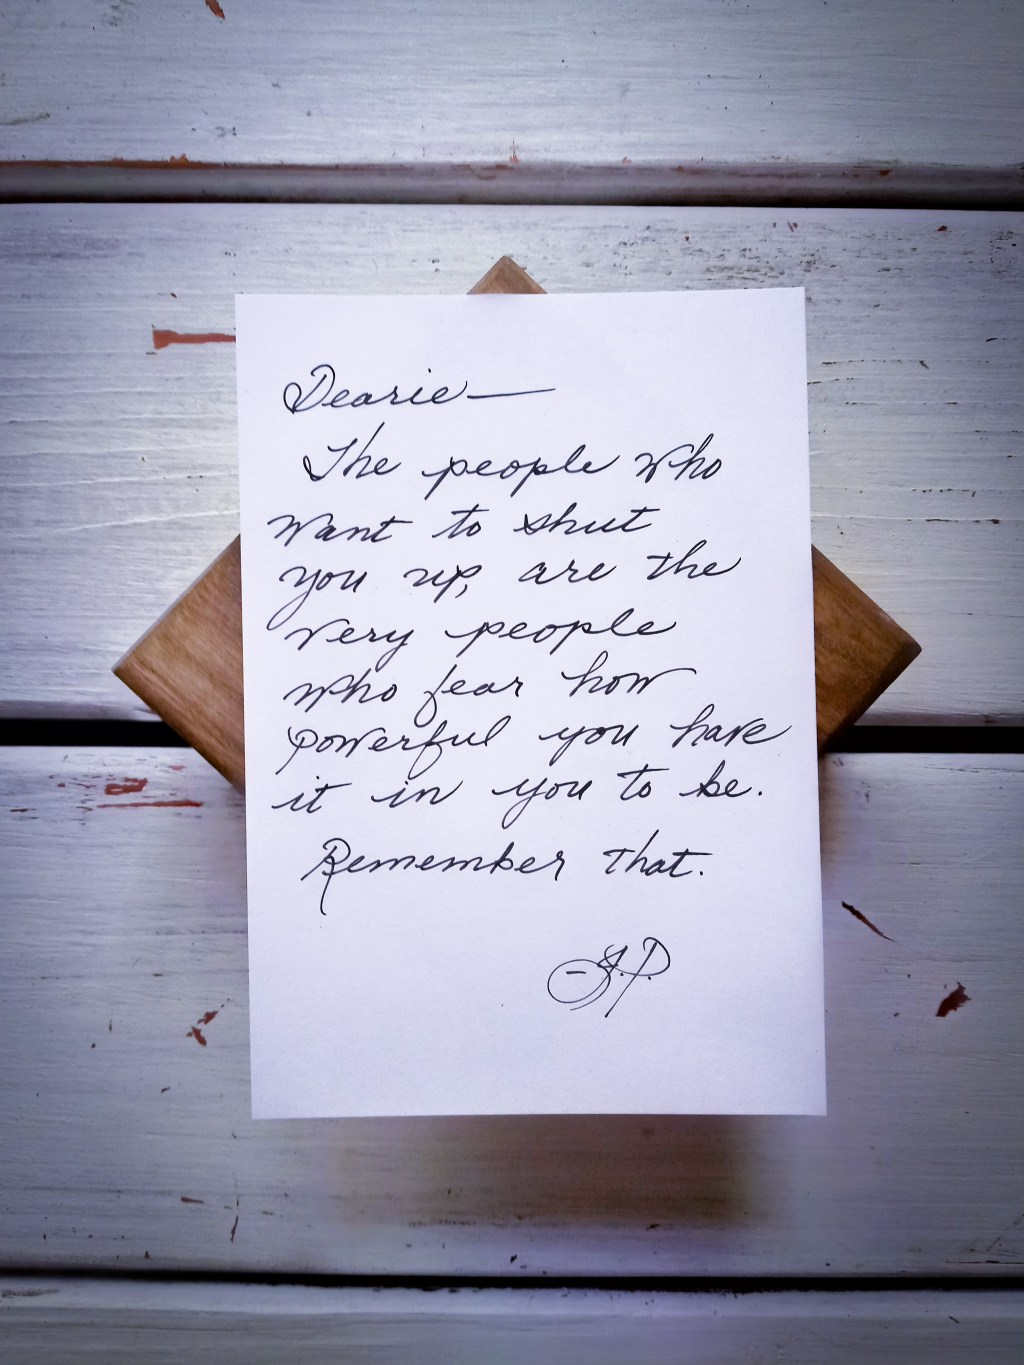 Dearie—
The people who
want to shut
you up, are the
very people
who fear how
powerful you have
it in you to be.
Remember that.